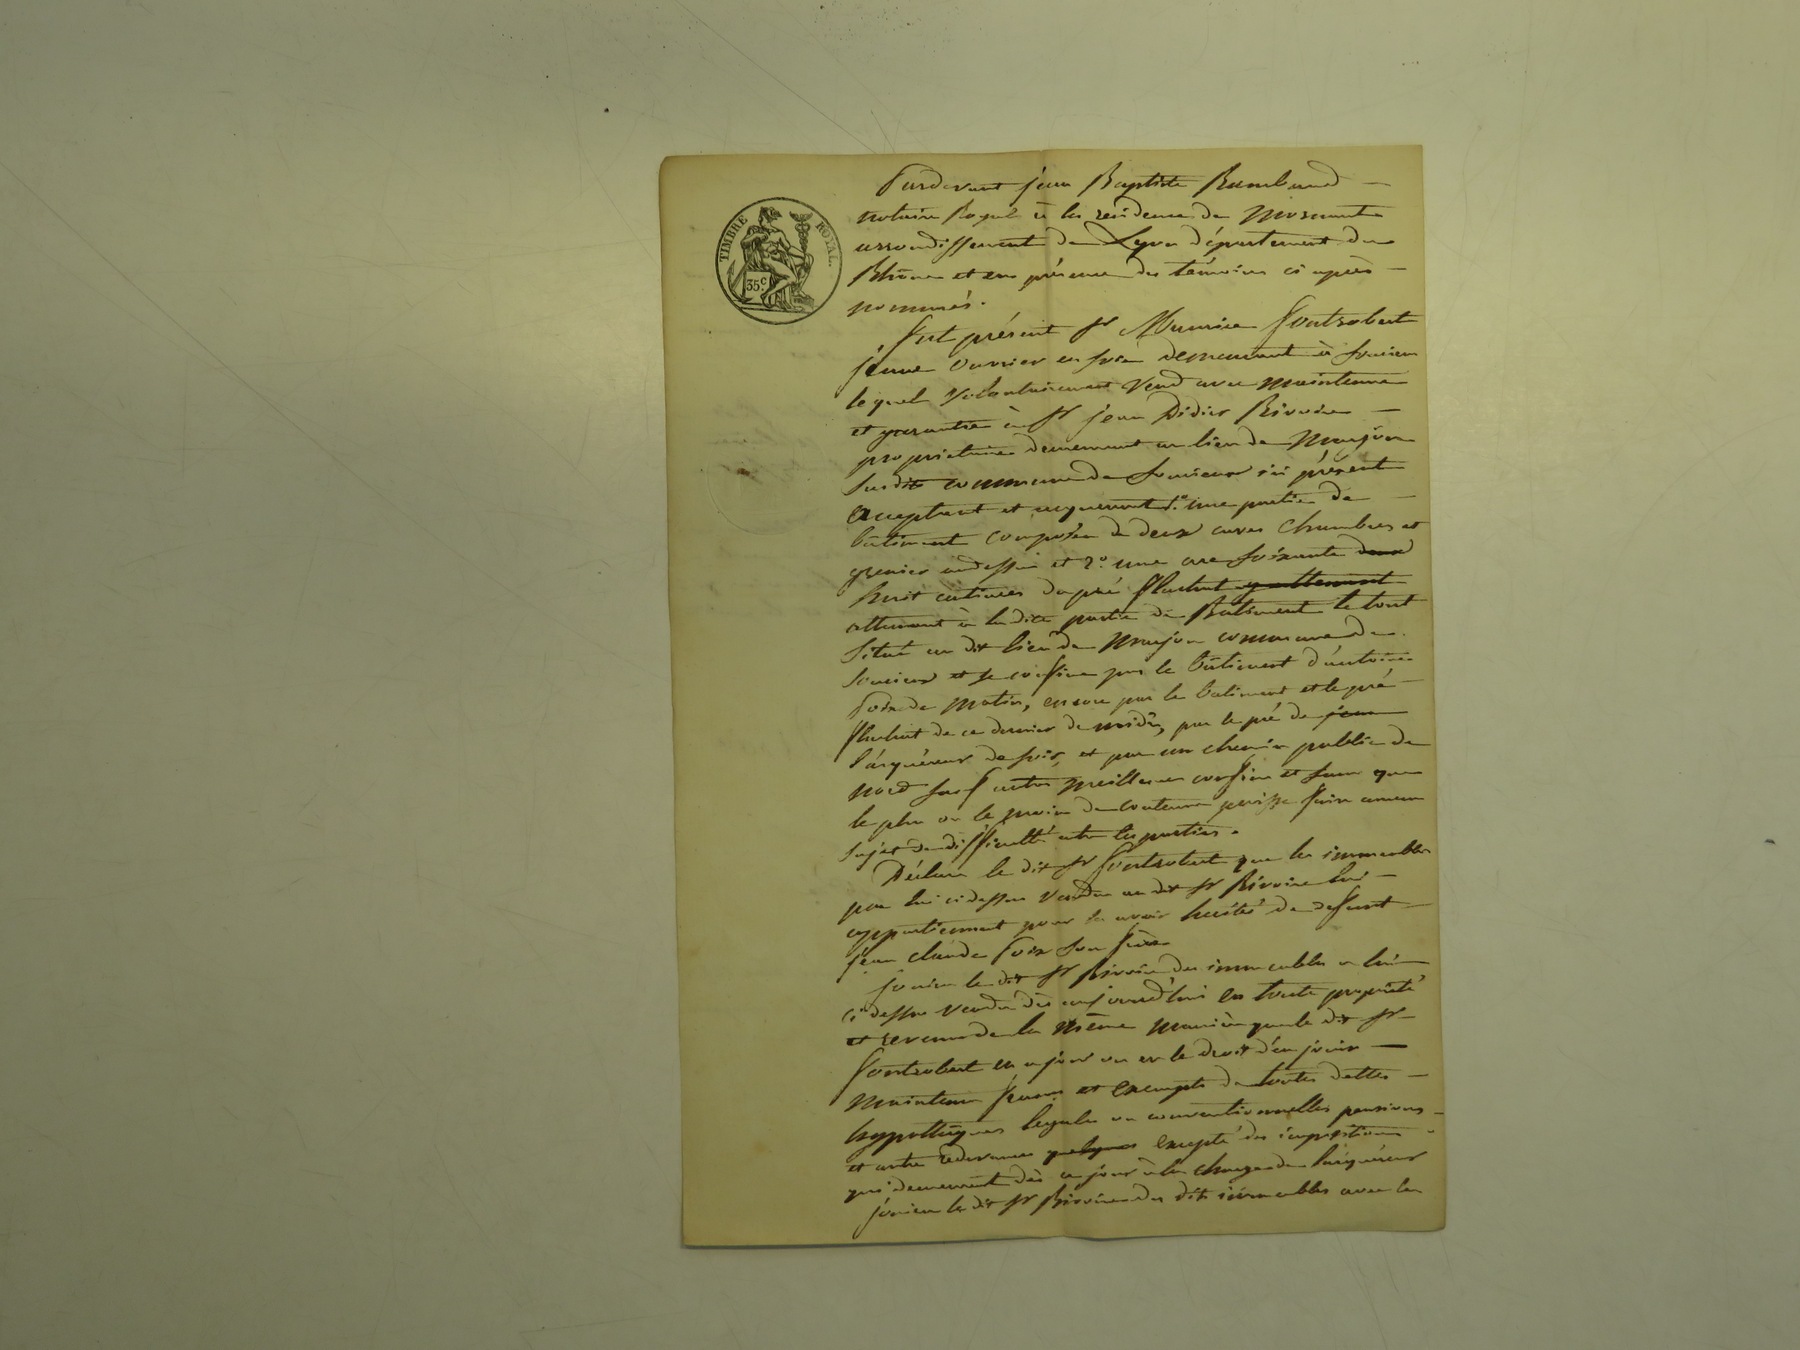 TIMBRE ROYAL.
35c.
Pardevant jean Baptiste Rambaud
notaire Royal à la residence de Mornant
arrondissement de Lyon département du
Rhône et en présence des témoins ci après
nommés.
fut présent sr Maurice fontrobert
jeune ouvrier en soie demeurant à soucieu
lequel volontairement vend avec maintenue
et garantie à sr jean Didier Rivoire
propriétaire demeurant au lieu de Marjon
susdite commune de soucieux ici présent
acceptant et requerant 1° une partie de
bâtiment composée de deux caves chambres et
grenier au dessus et 2° une are soixante
huit centiares de pré
attenant à la dite partie de Batiment le tout
situé au dit lieu de Marjon commune de
soucieux et se confine par le bâtiment d'antoine
de matin, encore par le batiment et le pré
de ce dernier de midi, par le pré de
l'acquéreur de soir, et par un chemin public de
nord sauf autres meilleurs confins et sans que
le plus ou le moins de contenue puisse faire aucun
sujet de difficulté entre les parties.
Déclare le dit sr fontrobert que les immeubles
par lui ci dessus vendus au dit sr Rivoire lui
appartiennent pour les avoir hérités de defunt
jean claude son
jouira le dit sr Rivoire des immeubles à lui
ci dessus vendus dès aujourd'hui en toute propriété
et revenu de la même manière que le dit sr
fontrobert en a joui ou eu le droit d'en jouir
maintenu francs et exempts de toutes dettes
hypothèques légales ou conventionnelles pensions
et autre redevances excepté des impositions
qui demeurent dès ce jour à la charge de l'acquéreur
jouira le dit sr Rivoire des dits immeubles avec les